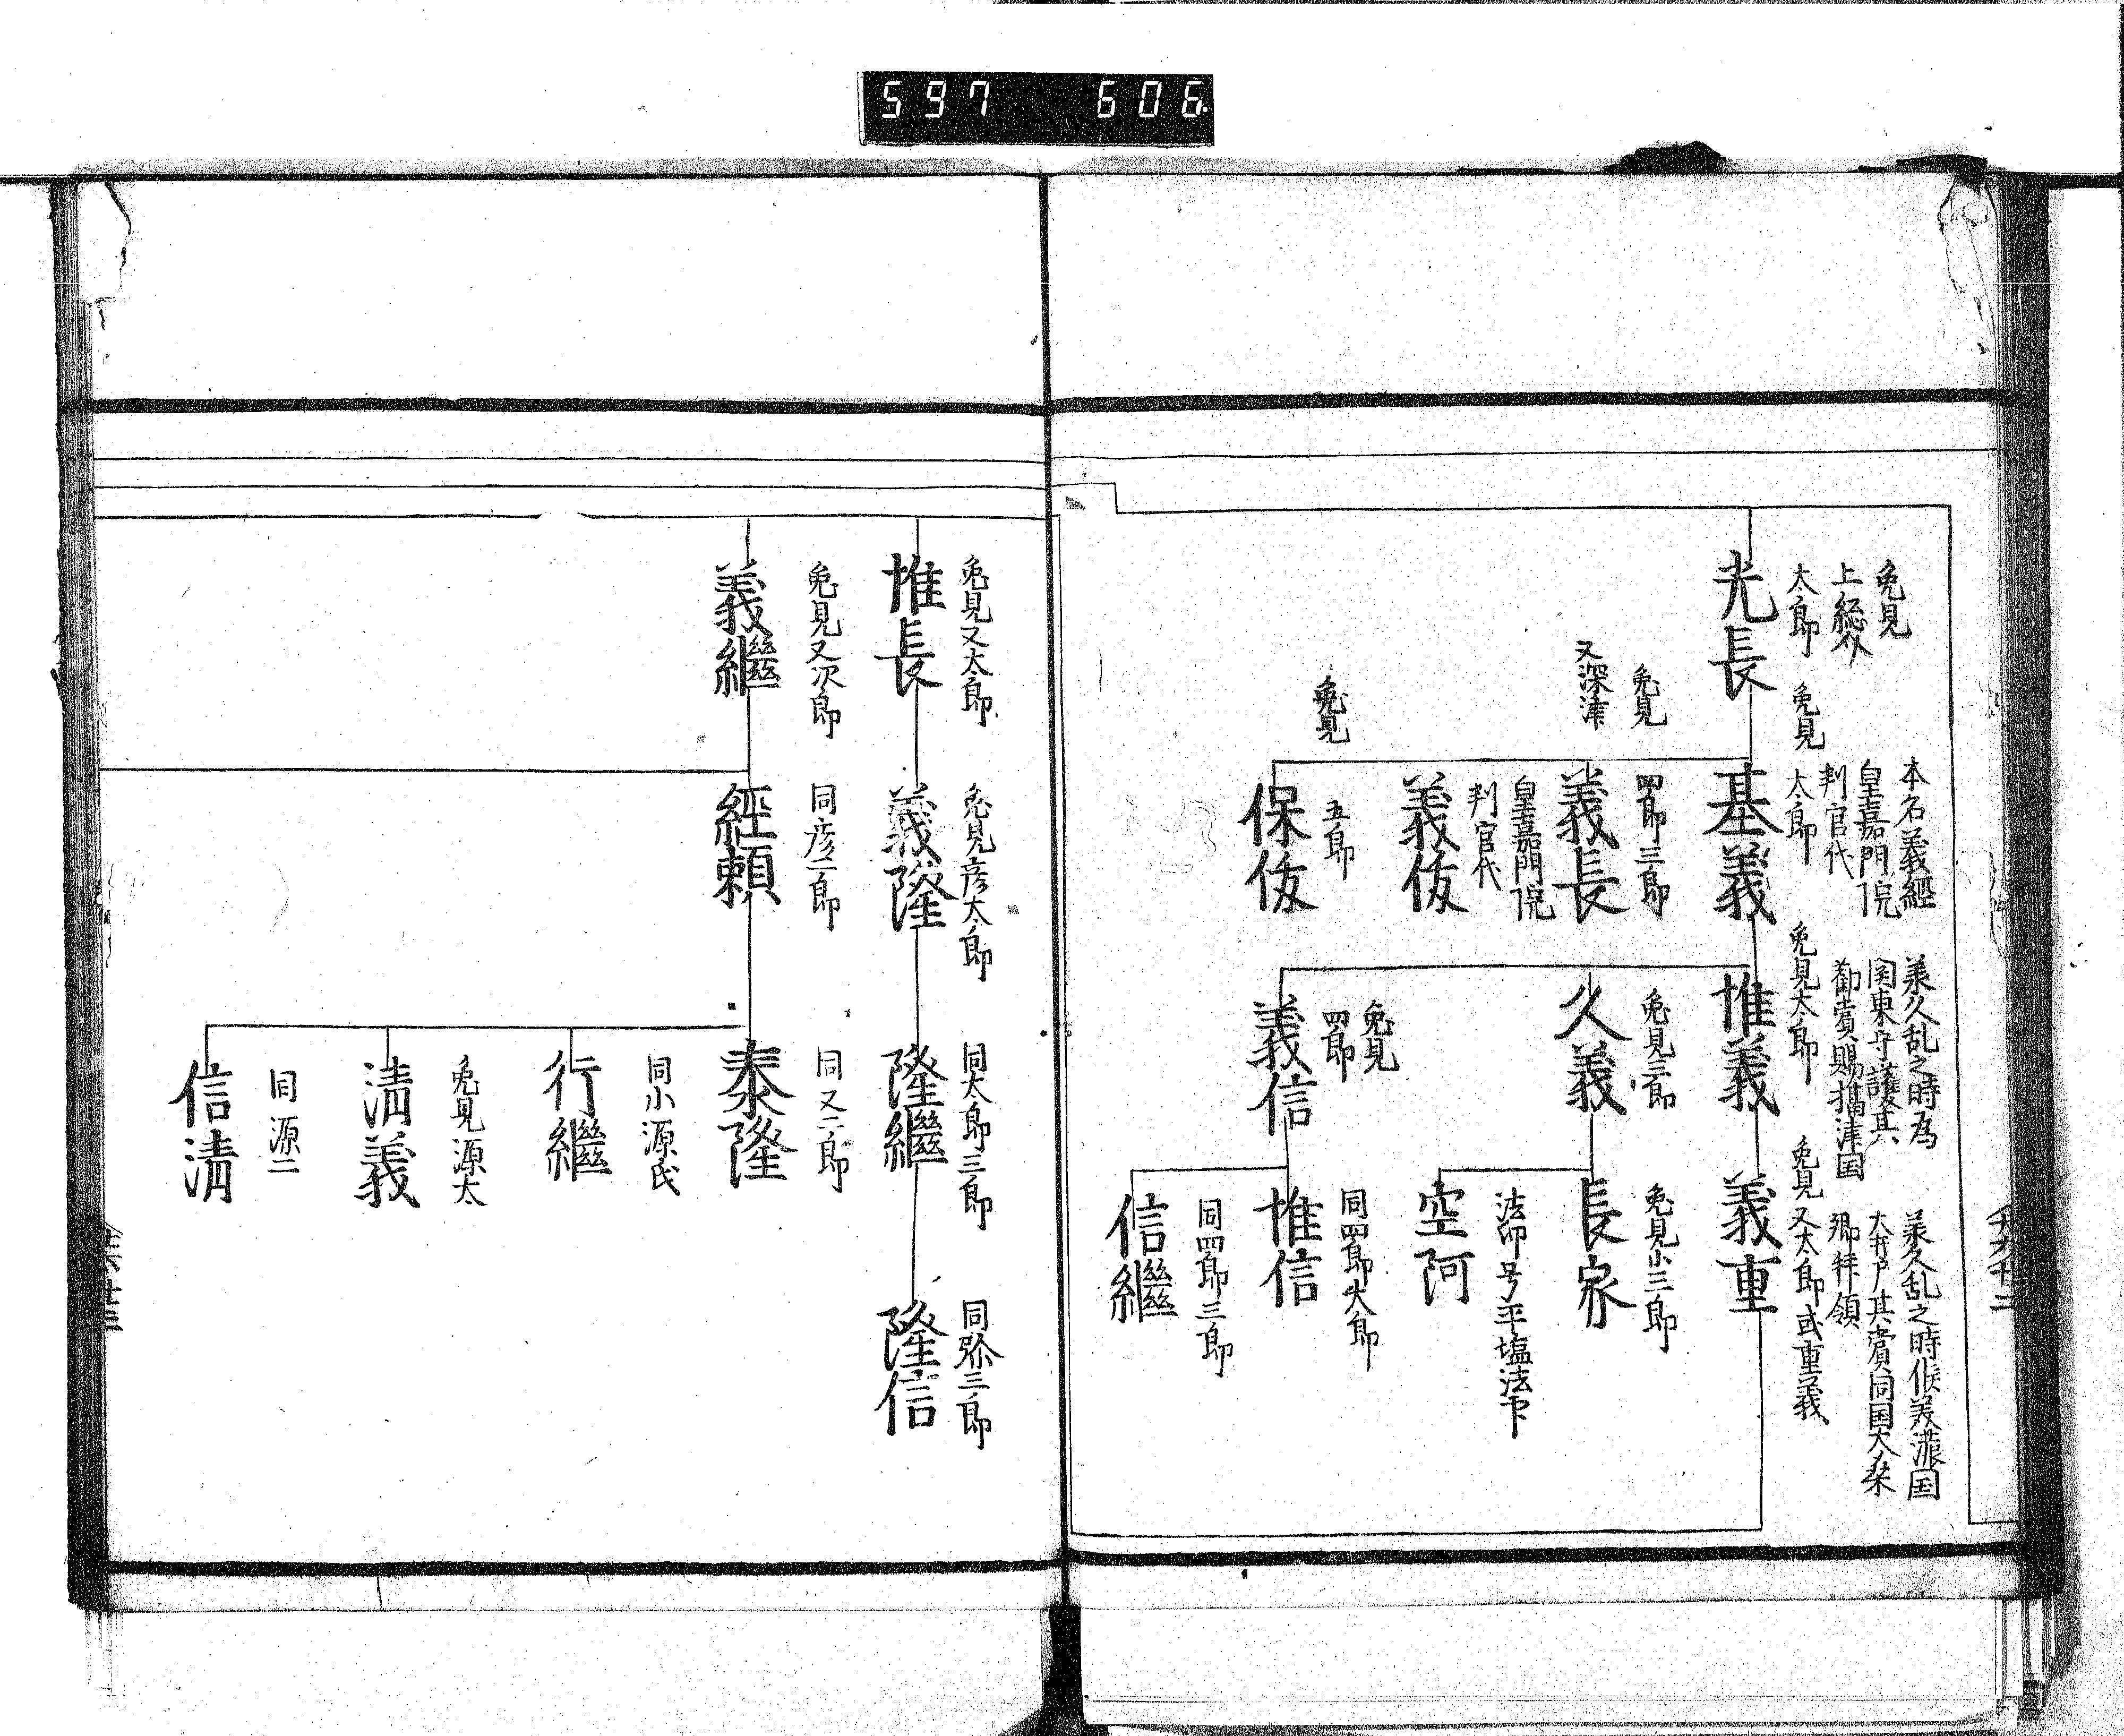 597 606
兔見
上総介
太郎
光長
兔見
本名義經
皇嘉門院
判官代
太郎
基義
兔見
四郎三郎
又深津
義長
皇嘉門院
判官代
義俊
兔見
五郎
保俊
承久乱之時為
関東守護其
勸賞賜攝津国
兔見太郎
惟義
兔見三郎
久義
兔見
四郎
義信
承久乱之時候美濃国
大井戸其賞同国大桑
郷拝領
兔見又太郎或重義
義重
兔見小三郎
長家
法印号平塩法印
空阿
同四郎太郎
惟信
同四郎三郎
信繼
兔見又太郎
惟長
兔見彦太郎
義隆
同太郎三郎
隆繼
同弥三郎
隆信
兔見又次郎
義繼
同彦二郎
經頼
同又二郎
泰隆
同小源氏
行繼
兔見源太
淸義
同源二
信淸